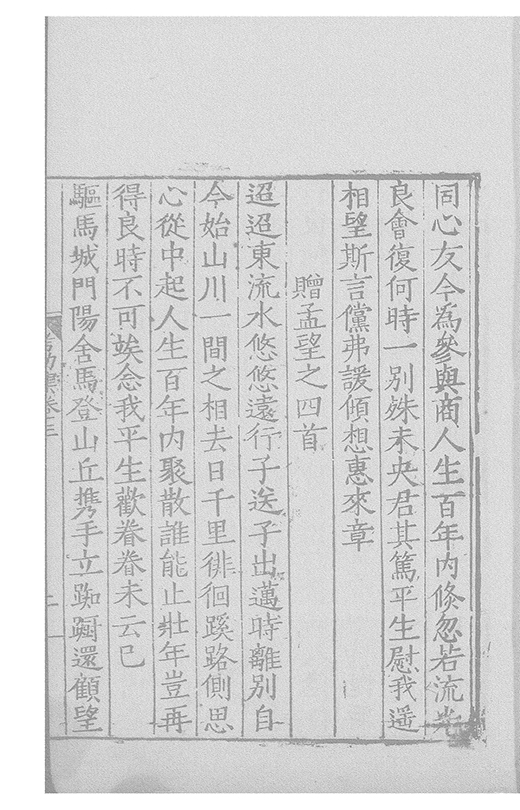 同心友今為參與商人生百年內倏忽若流光
良會復何時一別殊未央君其篤平生慰我遥
相望斯言儻弗諼傾想惠來章
贈孟望之四首
迢迢東流水悠悠遠行子送子出邁時離別自
今始山川一間之相去日千里徘徊蹊路側思
心從中起人生百年内聚散誰能止壯年豈再
得良時不可竢念我平生歡眷眷未云已
驅馬城門陽舍馬登山丘携手立踟躕還顧望
卷三